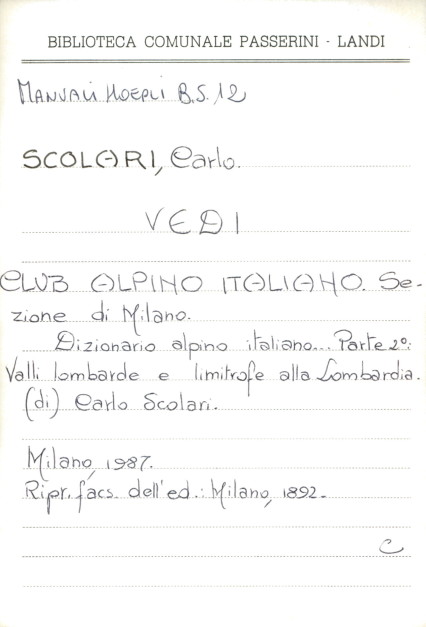 BIBLIOTECA COMUNALE PASSERINI - LANDI
MANUALI HOEPLI B.S. 12
SCOLARI, Carlo.
VEDI
CLUB ALPINO ITALIANO. Se-
zione di Milano.
Dizionario alpino italiano... Parte 2º:
Valli lombarde e limitrofe alla Lombardia.
(di) Carlo Scolari.
Milano, 1987.
Ripr. facs. dell'ed.: Milano, 1892.
C